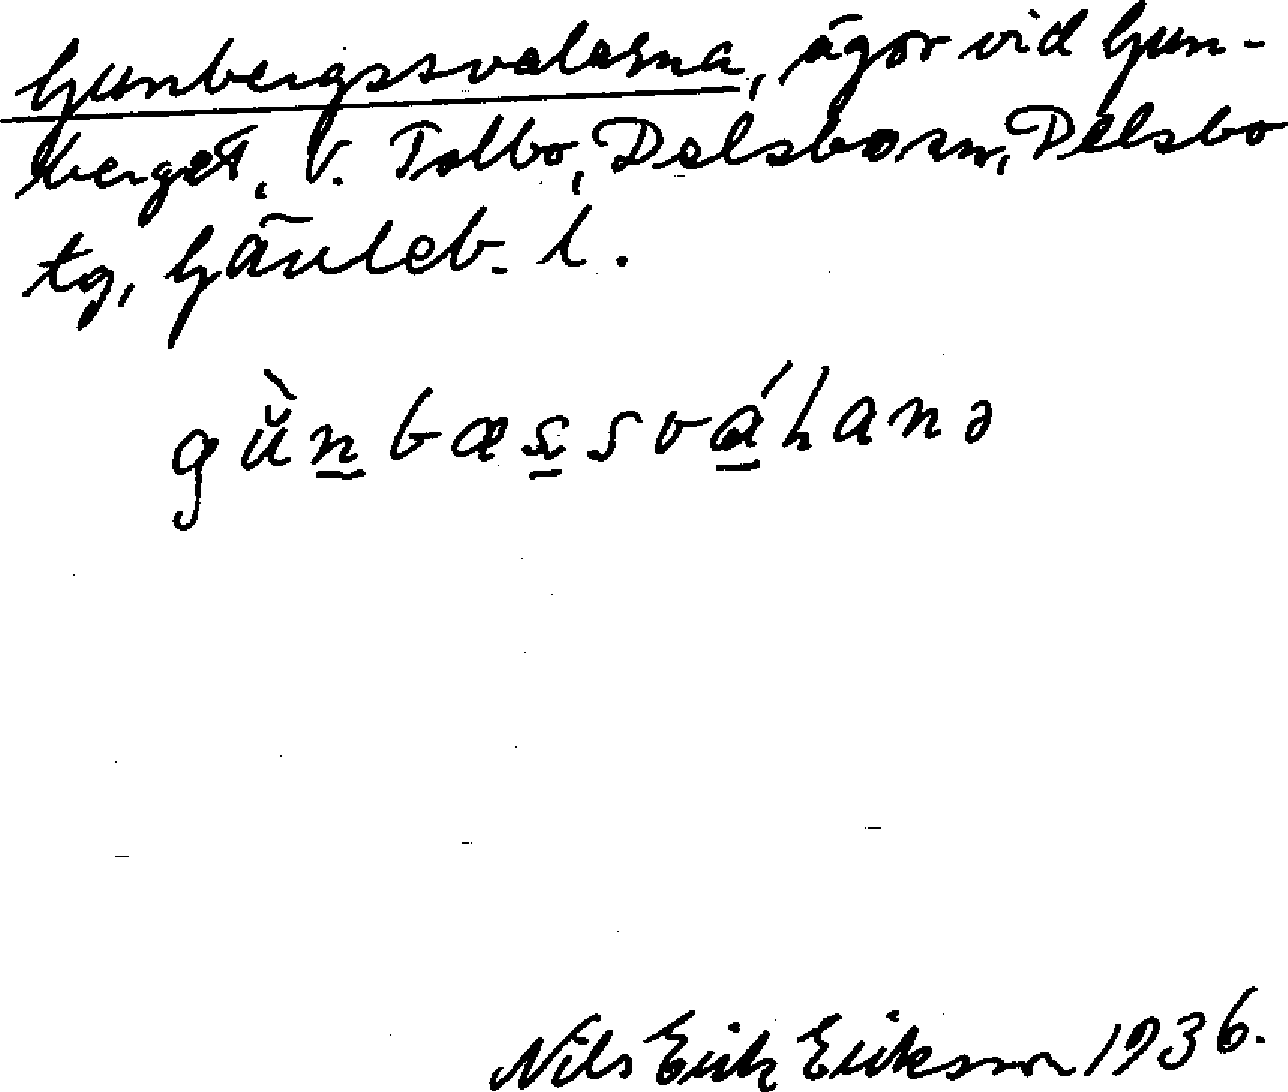 Gunbergssvalarna, ägor vid Gun-
berget, V. Tolbo, Delsbo sn, Delsbo
tg, Gävleb. l.
gùn̲bæs̲svá̲lanə
Nils Erik Eriksson 1936.